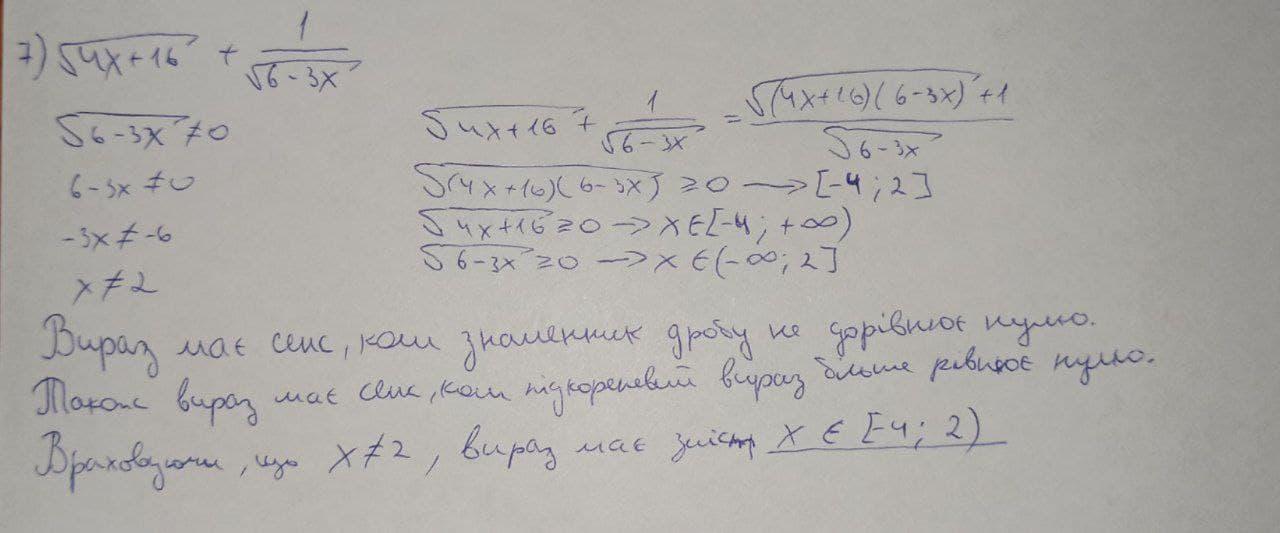 7) √(4x+16) + 1/√(6-3x)
√(6-3x) ≠ 0
6-3x ≠ 0
-3x ≠ -6
x ≠ 2
√(4x+16) + 1/√(6-3x) = (√((4x+16)(6-3x)) + 1)/√(6-3x)
√((4x+16)(6-3x)) ≥ 0 → [-4; 2]
√(4x+16) ≥ 0 → x ∈ [-4; +∞)
√(6-3x) ≥ 0 → x ∈ (-∞; 2]
Вираз має сенс, коли знаменник дробу не дорівнює нулю.
Також вираз має сенс, коли підкореневий вираз більше рівнює нулю.
Враховуючи, що x ≠ 2, вираз має зміст x ∈ [-4; 2)